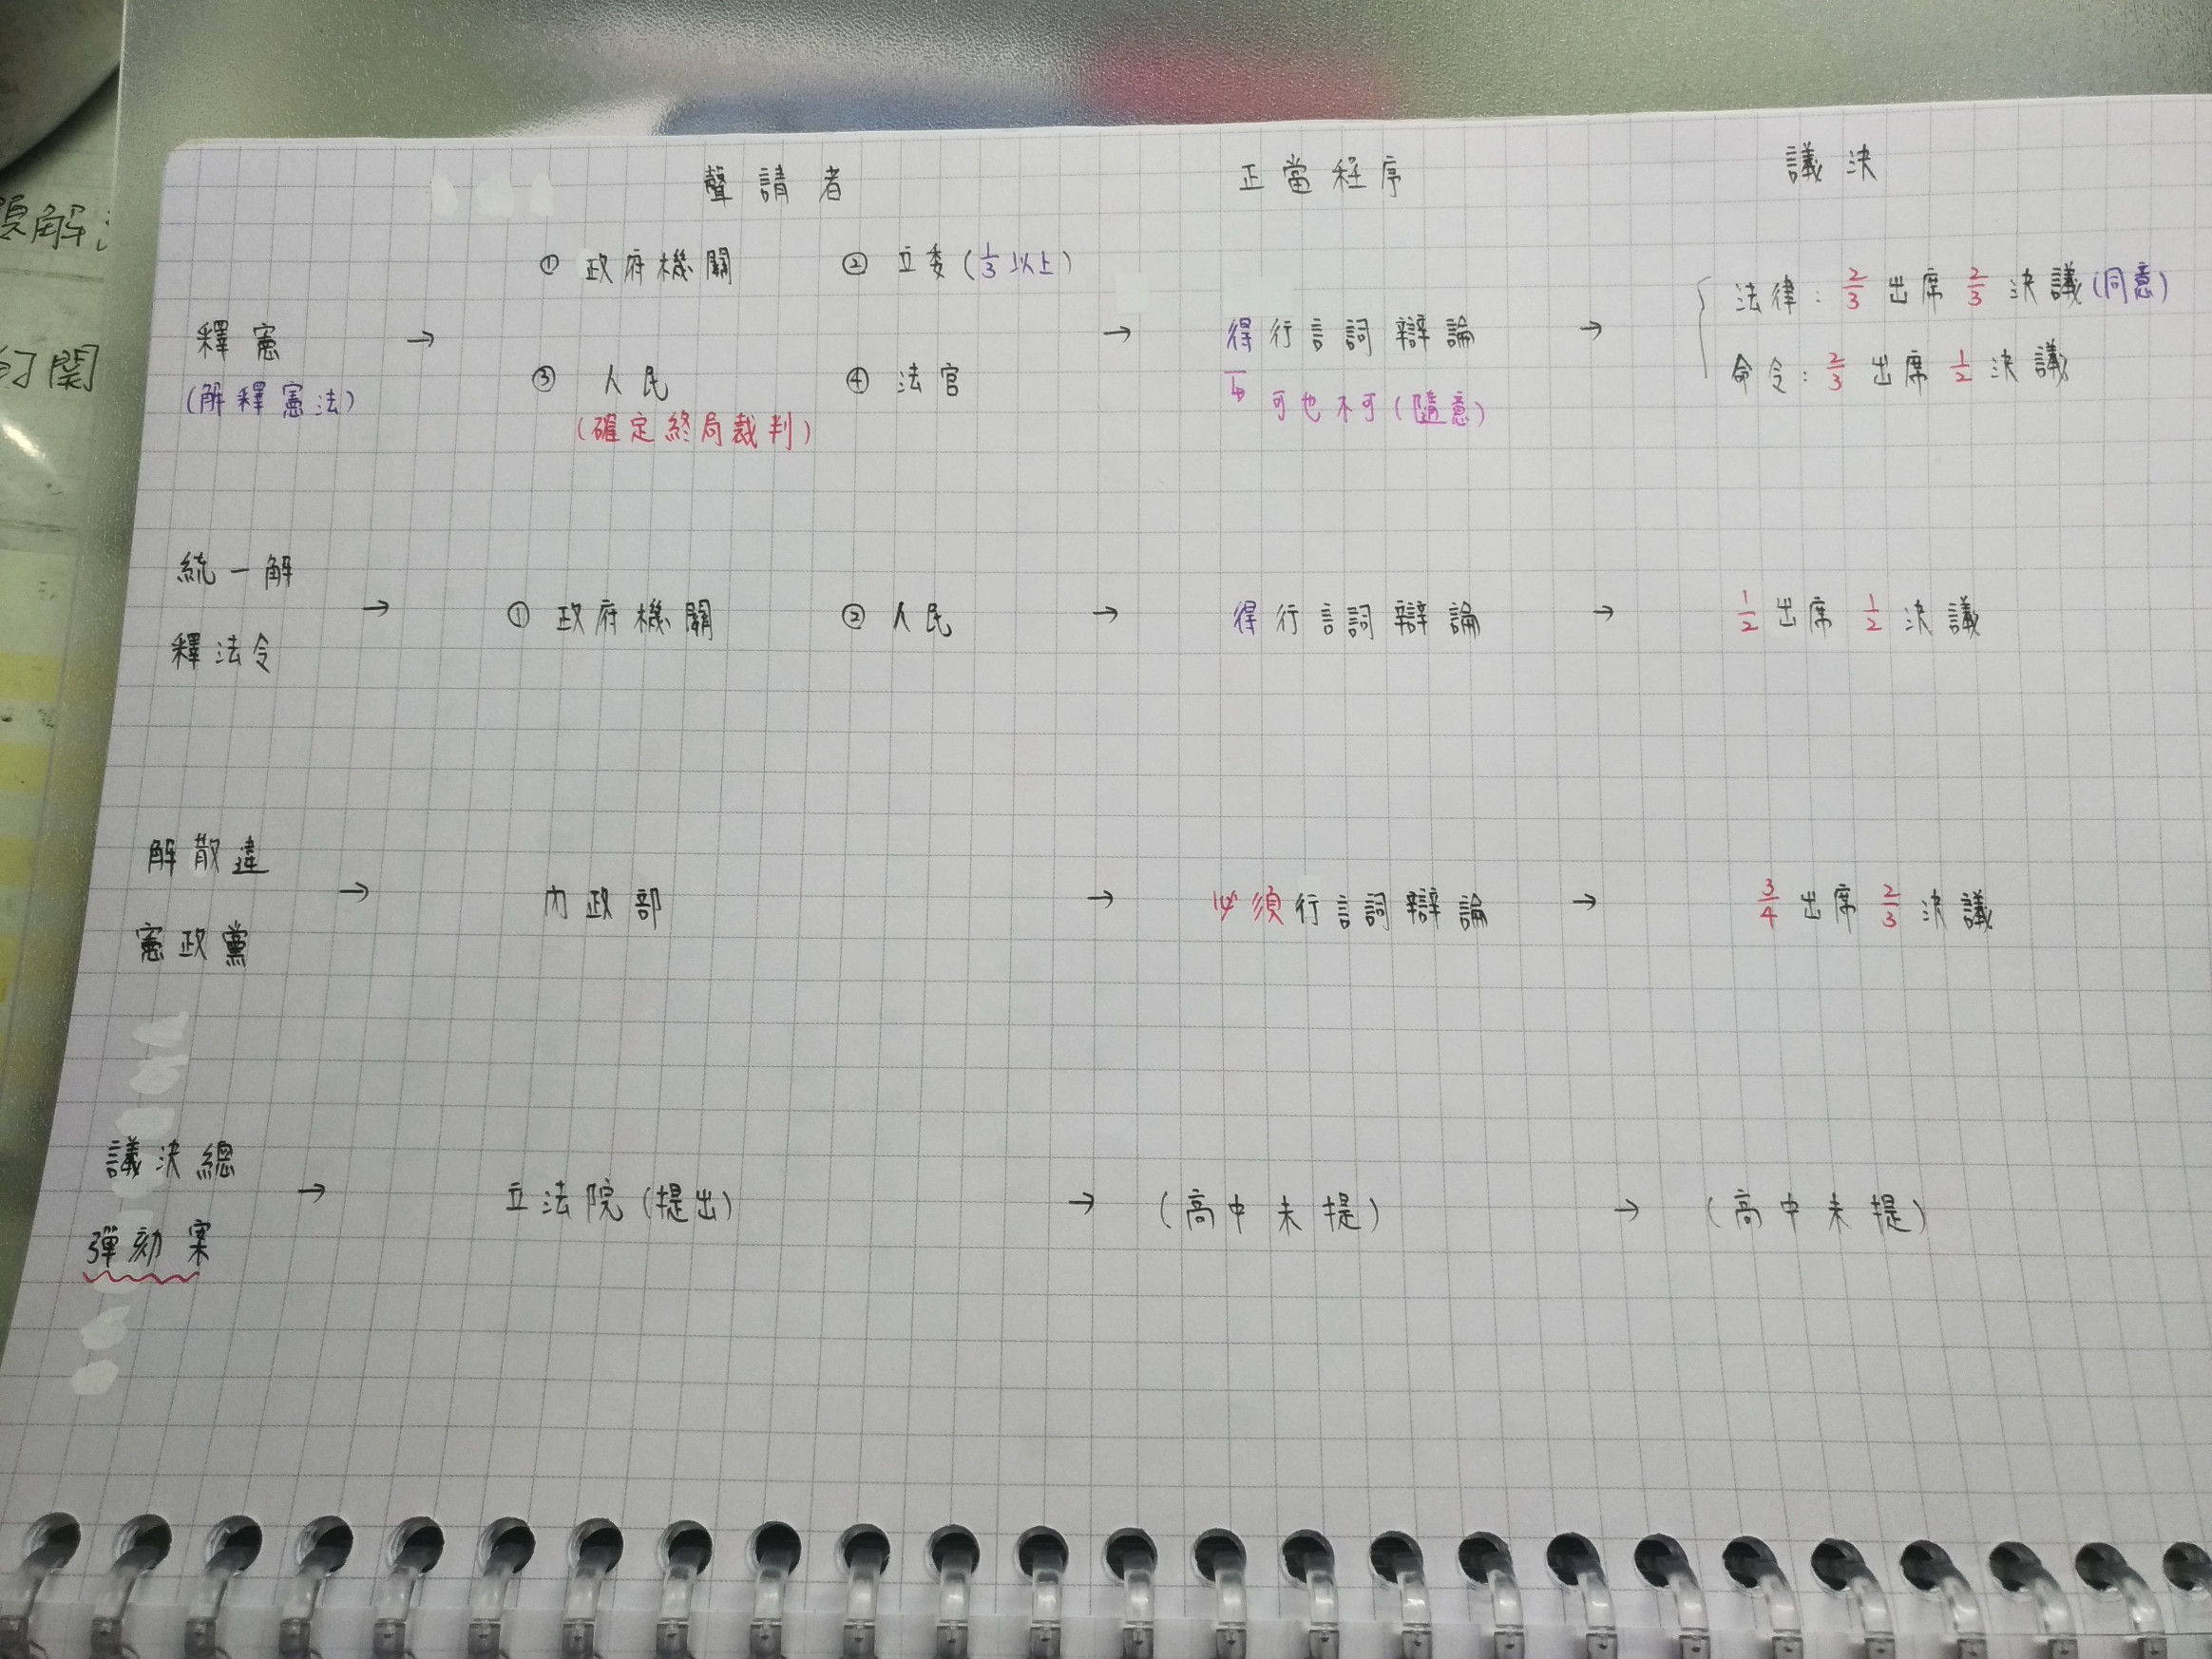 聲請者 正當程序 議決
① 政府機關 ② 立委(1/3以上)
法律: 2/3 出席 2/3 決議(同意)
釋憲 → → 得行言詞辯論 →
③ 人民 ④ 法官
命令: 2/3 出席 1/2 決議
(解釋憲法)
(確定終局裁判)
↳ 可也不可(隨意)
統一解
→ ① 政府機關 ② 人民 → 得行言詞辯論 → 1/2 出席 1/2 決議
釋法令
解散違
→ 內政部 → 必須行言詞辯論 → 3/4 出席 2/3 決議
憲政黨
議決總
→ 立法院(提出) → (高中未提) → (高中未提)
彈劾案
解
關